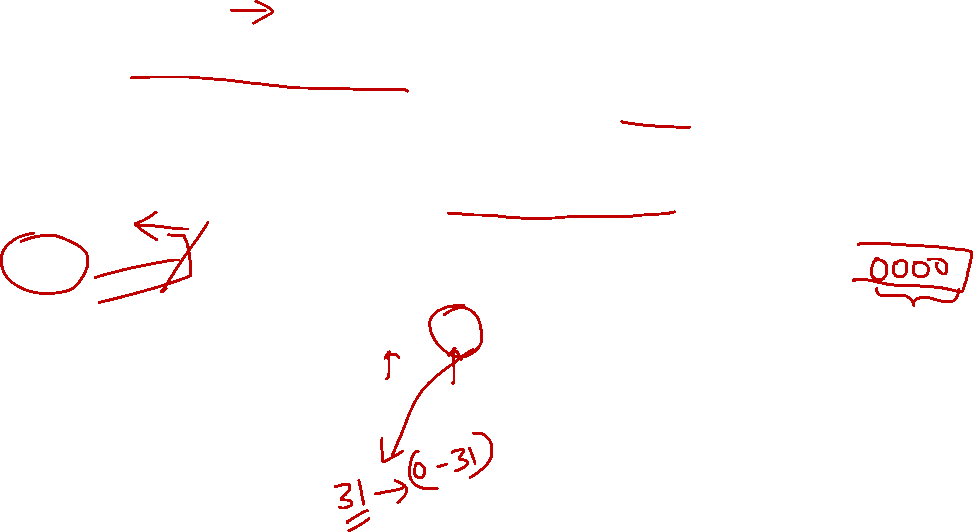 0000
31 → (0-31)